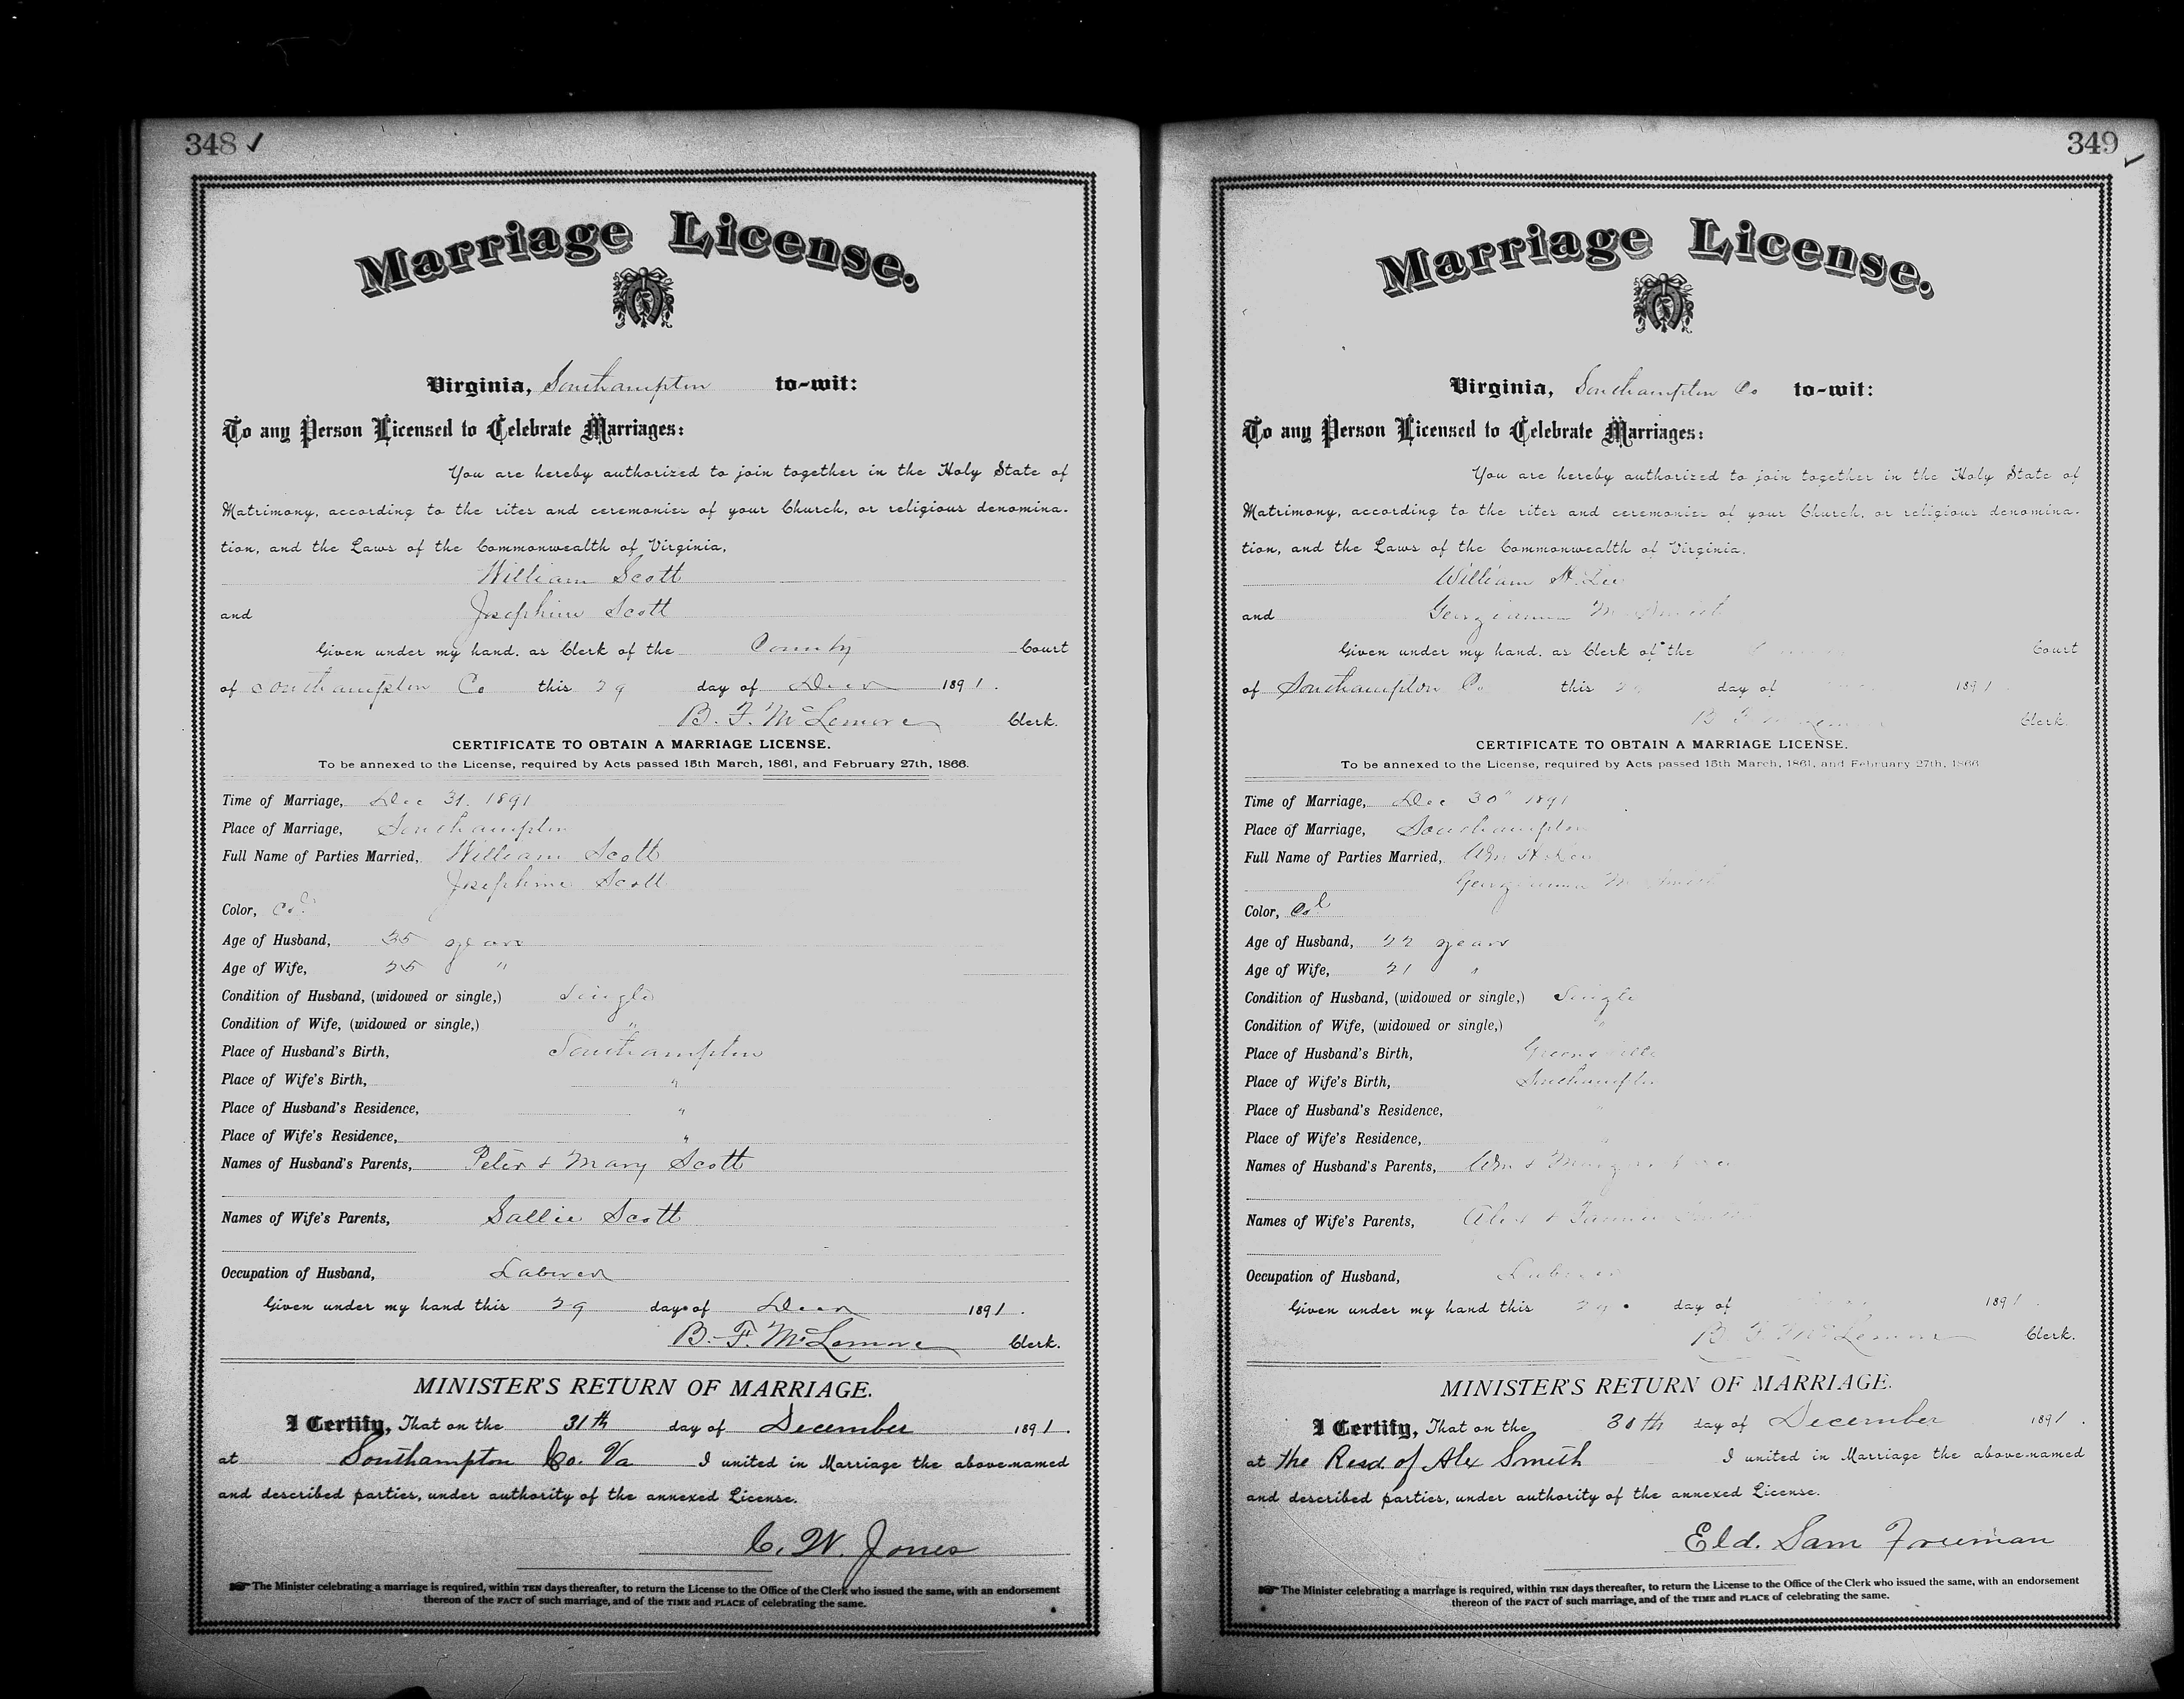 348 ✓
Marriage License.
Virginia, Southampton to-wit:
To any Person Licensed to Celebrate Marriages:
You are hereby authorized to join together in the Holy State of
Matrimony, according to the rites and ceremonies of your Church, or religious denomina-
tion, and the Laws of the Commonwealth of Virginia,
William Scott
and Josephine Scott
Given under my hand, as Clerk of the County Court
of Southampton Co this 29 day of Decr 1891.
B. F. McLemore Clerk.
CERTIFICATE TO OBTAIN A MARRIAGE LICENSE.
To be annexed to the License, required by Acts passed 15th March, 1861, and February 27th, 1866.
Time of Marriage, Dec 31. 1891
Place of Marriage, Southampton
Full Name of Parties Married, William Scott
Josephine Scott
Color, Cold
Age of Husband, years
Age of Wife, 25 "
Condition of Husband, (widowed or single,) Single
Condition of Wife, (widowed or single,) "
Place of Husband's Birth, Southampton
Place of Wife's Birth, "
Place of Husband's Residence, "
Place of Wife's Residence, "
Names of Husband's Parents, Peter & Mary Scott
Names of Wife's Parents, Sallie Scott
Occupation of Husband, Laborer
Given under my hand this 29 day of Decr 1891.
B. F. McLemore Clerk.
MINISTER'S RETURN OF MARRIAGE.
I Certify, That on the 31th day of December 1891.
at Southampton Co. Va I united in Marriage the above-named
and described parties, under authority of the annexed License.
C. W. Jones
☞ The Minister celebrating a marriage is required, within TEN days thereafter, to return the License to the Office of the Clerk who issued the same, with an endorsement
thereon of the FACT of such marriage, and of the TIME and PLACE of celebrating the same.
349 ✓
Marriage License.
Virginia, Southampton Co to-wit:
To any Person Licensed to Celebrate Marriages:
You are hereby authorized to join together in the Holy State of
Matrimony, according to the rites and ceremonies of your Church, or religious denomina-
tion, and the Laws of the Commonwealth of Virginia,
William H. Lee
and Georgianna
Given under my hand, as Clerk of the Court
of Southampton Co this 29 day of 1891
B F McLemore Clerk.
CERTIFICATE TO OBTAIN A MARRIAGE LICENSE.
To be annexed to the License, required by Acts passed 15th March, 1861, and February 27th, 1866
Time of Marriage, Dec 30" 1891
Place of Marriage, Southampton
Full Name of Parties Married, Wm H Lee
Georgianna
Color, Col
Age of Husband, 22 years
Age of Wife, 21 "
Condition of Husband, (widowed or single,) Single
Condition of Wife, (widowed or single,) "
Place of Husband's Birth, Greensville
Place of Wife's Birth, Southampton
Place of Husband's Residence, "
Place of Wife's Residence, "
Names of Husband's Parents, Wm &
Names of Wife's Parents, Alex & Fannie
Occupation of Husband, Laborer
Given under my hand this 29 day of 1891
B F McLemore Clerk.
MINISTER'S RETURN OF MARRIAGE.
I Certify, That on the 30th day of December 1891.
at the Resd. of Alex Smith I united in Marriage the above-named
and described parties, under authority of the annexed License.
Eld. Sam Freeman
☞ The Minister celebrating a marriage is required, within TEN days thereafter, to return the License to the Office of the Clerk who issued the same, with an endorsement
thereon of the FACT of such marriage, and of the TIME and PLACE of celebrating the same.